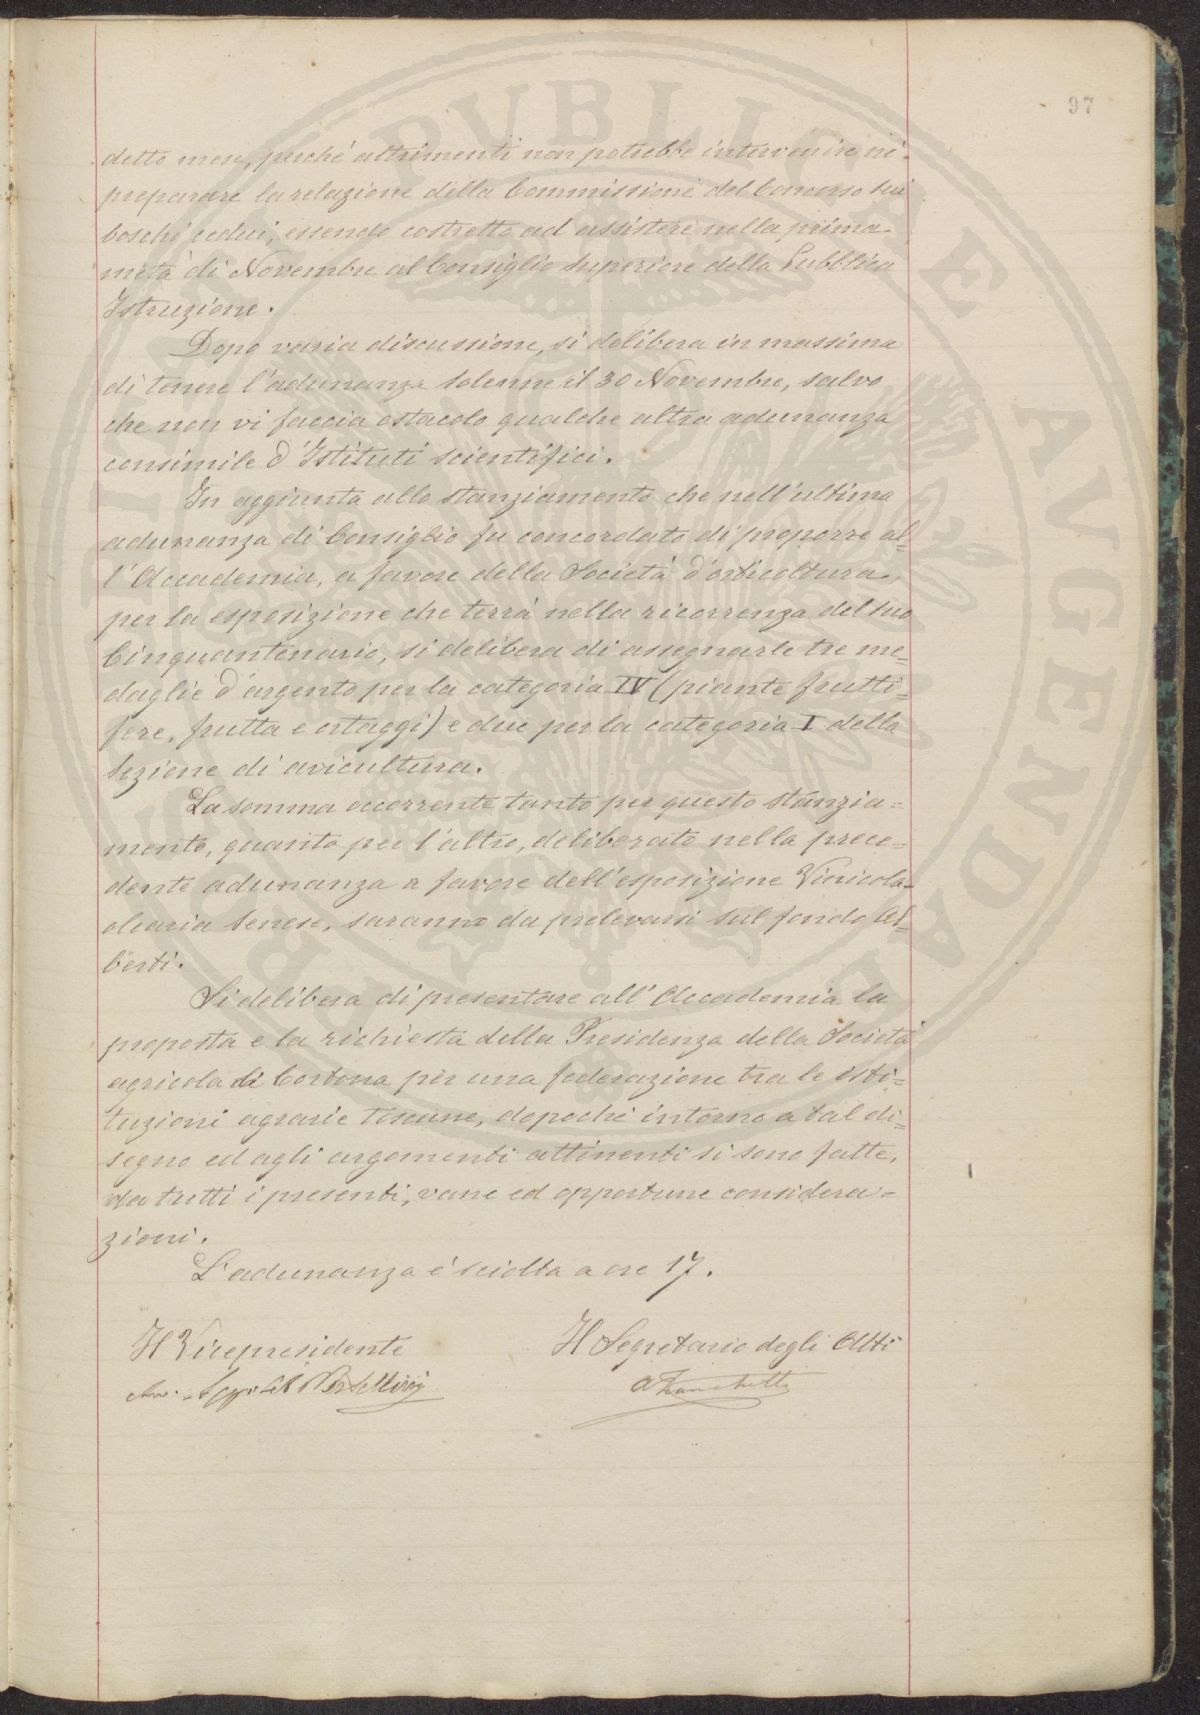 97
detto mese, perché altrimenti non potrebbe intervenire né
preparare la relazione della Commissione del Concorso sui
boschi cedui, essendo costretto ad assistere nella prima
metà di Novembre al Consiglio Superiore della Pubblica
Istruzione.
Dopo varia discussione, si delibera in massima
di tenere l'adunanza solenne il 30 Novembre, salvo
che non vi faccia ostacolo qualche altra adunanza
consimile d'Istituti scientifici.
In aggiunta allo stanziamento che nell'ultima
adunanza di Consiglio fu concordato di proporre al=
l'Accademia, a favore della Società d'orticoltura,
per la esposizione che terrà nella ricorrenza del suo
Cinquantenario, si delibera di assegnarle tre me=
daglie d'argento per la categoria IV (piante frutti=
fere, frutta e ortaggi) e due per la categoria I della
sezione di avicultura.
La somma occorrente tanto per questo stanzia=
mento, quanto per l'altro, deliberato nella prece=
dente adunanza a favore dell'esposizione Vinicola=
olearia Senese, saranno da prelevarsi sul fondo Al=
berti.
Si delibera di presentare all'Accademia la
proposta e la richiesta della Presidenza della Società
agricola di Cortona per una federazione tra le isti=
tuzioni agrarie toscane, dopoché intorno a tal di=
segno ed agli argomenti attinenti si sono fatte,
da tutti i presenti, varie ed opportune considera=
zioni.
L'adunanza é sciolta a ore 17.
Il Vicepresidente
Il Segretario degli Atti
PUBLICAE AUGENDAE